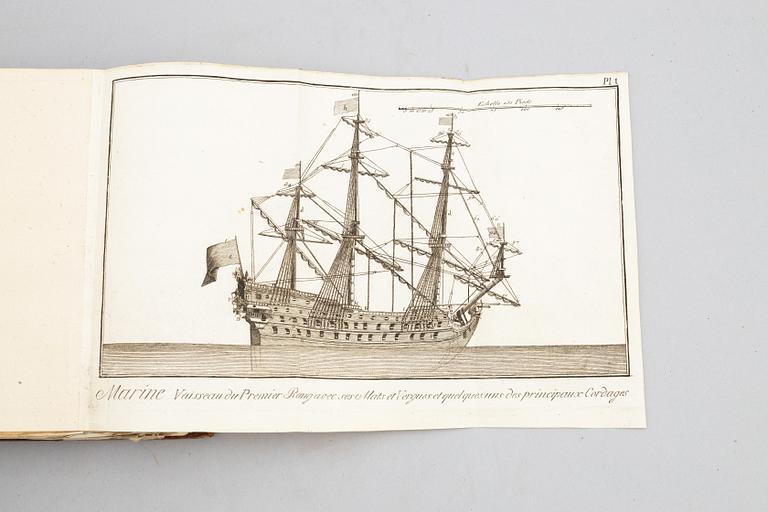 Pl 1
Echelle de Pieds
Marine Vaisseau du Premier Rang avec ses Mats et Vergues et quelques uns des principaux Cordages